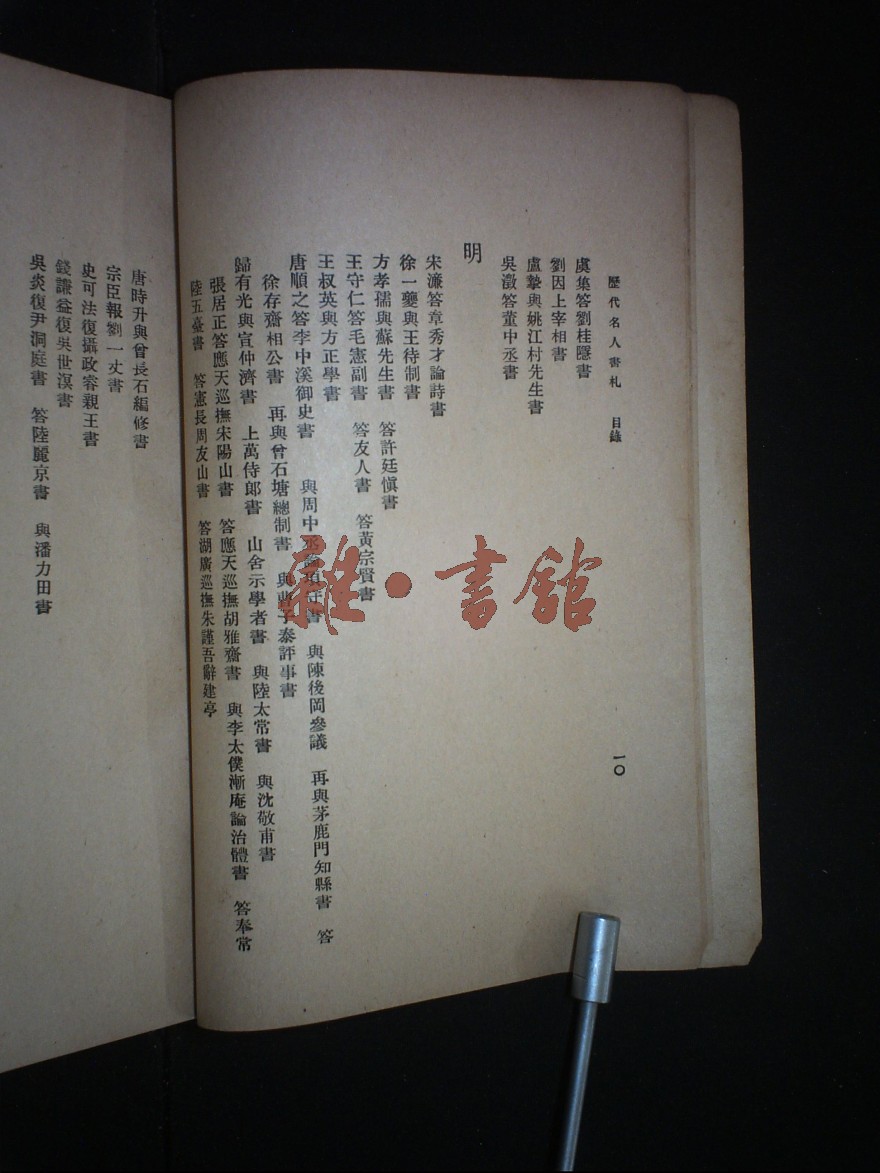 歷代名人書札 目錄 一〇
虞集答劉桂隱書
劉因上宰相書
盧摯與姚江村先生書
吳澂答董中丞書
明
宋濂答章秀才論詩書
徐一夔與王待制書
方孝孺與蘇先生書 答許廷愼書
王守仁答毛憲副書 答友人書 答黃宗賢書
王叔英與方正學書
唐順之答李中溪御史書 與周中丞論項守書 與陳後岡參議 再與茅鹿門知縣書 答
徐存齋相公書 再與曾石塘總制書 與曹子泰評事書
歸有光與宣仲濟書 上萬侍郎書 山舍示學者書 與陸太常書 與沈敬甫書
張居正答應天巡撫宋陽山書 答應天巡撫胡雅齋書 與李太僕漸庵論治體書 答奉常
陸五臺書 答憲長周友山書 答湖廣巡撫朱謹吾辭建亭
唐時升與曾長石編修書
宗臣報劉一丈書
史可法復攝政睿親王書
錢謙益復吳世淇書
吳炎復尹洞庭書 答陸麗京書 與潘力田書
雜·書館